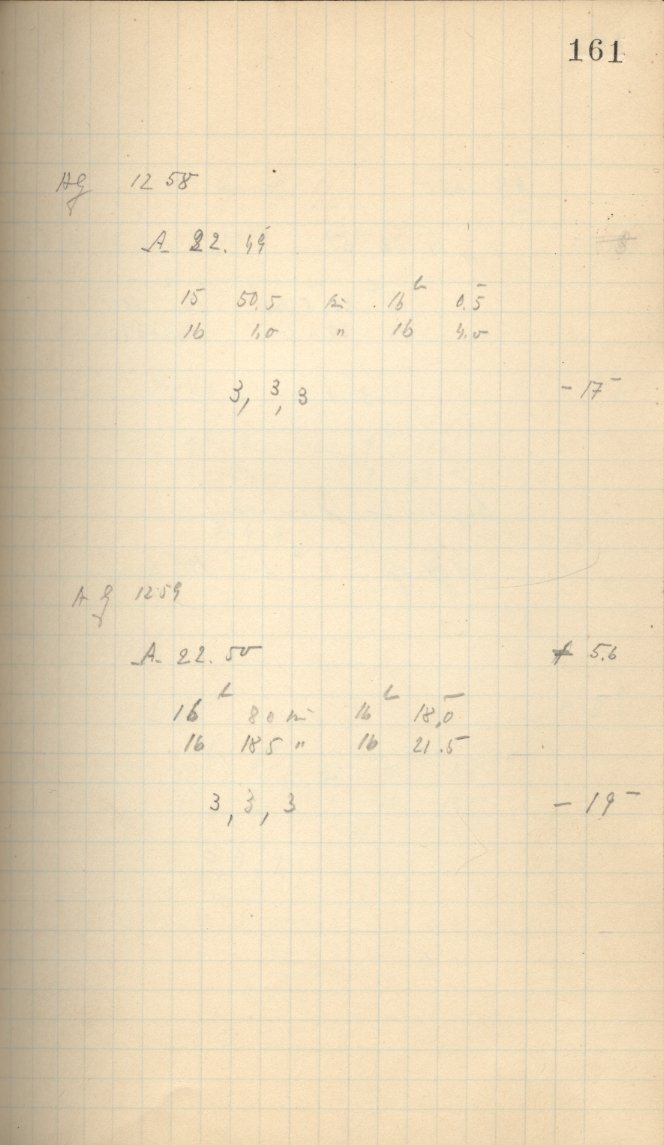 161
AG 1258
A 22. 49
15 50.5 bis 16h 0.5
16 1,0 " 16 4.0
3, 3, 3 - 17 -
AG 1259
A 22. 50 5.6
16h 8 0 bis 16h 18,0
16 18 5 " 16 21.5
3, 3, 3 - 19 -